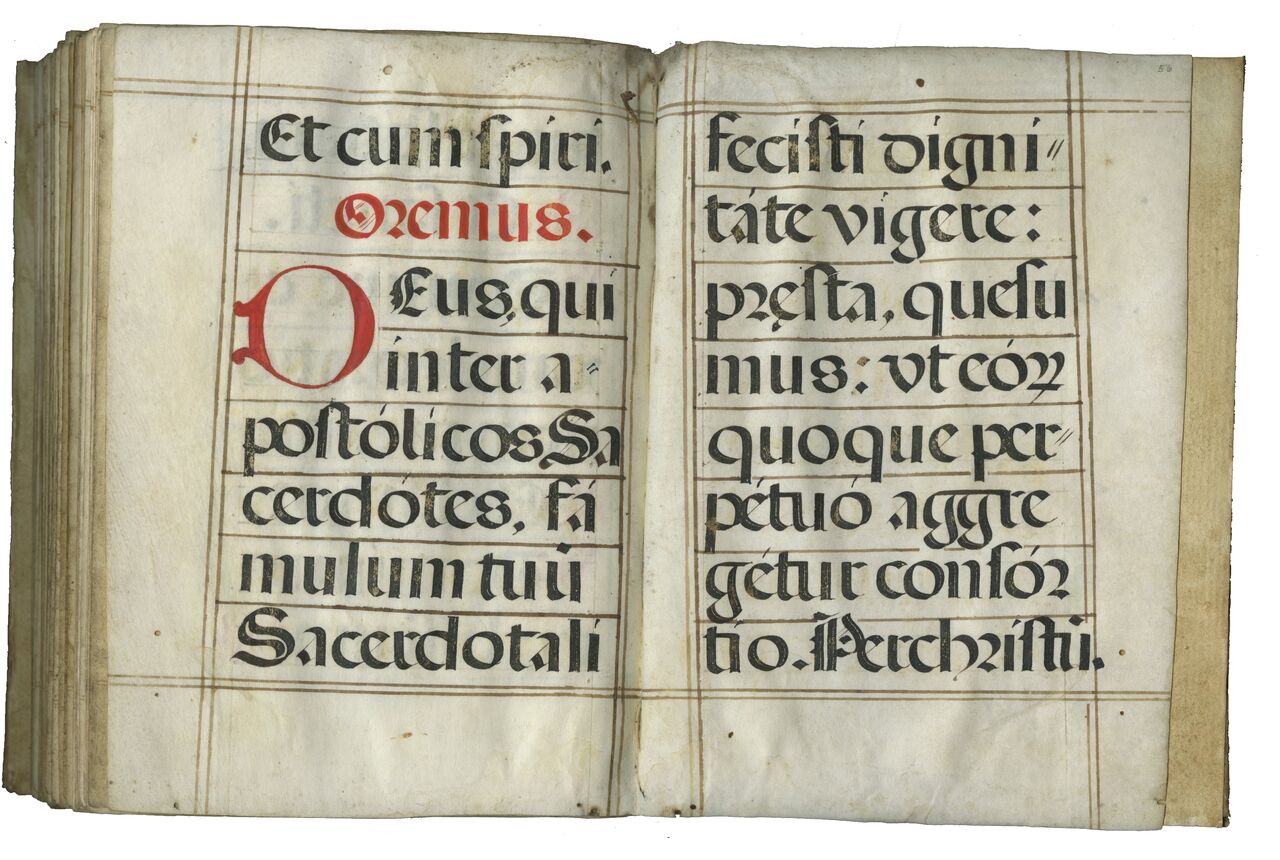 Et cum ſpiri.
Oremus.
DEus, qui
inter a=
poſtólicos Sa
cerdótes, fá
mulum tuũ
Sacerdotali
56
feciſti digni=
táte vigere:
pręſta, queſu
mus: vt eóꝝ
quoque per=
pétuó aggre
gétur conſóꝛ
tio. Perchꝛiſtũ.